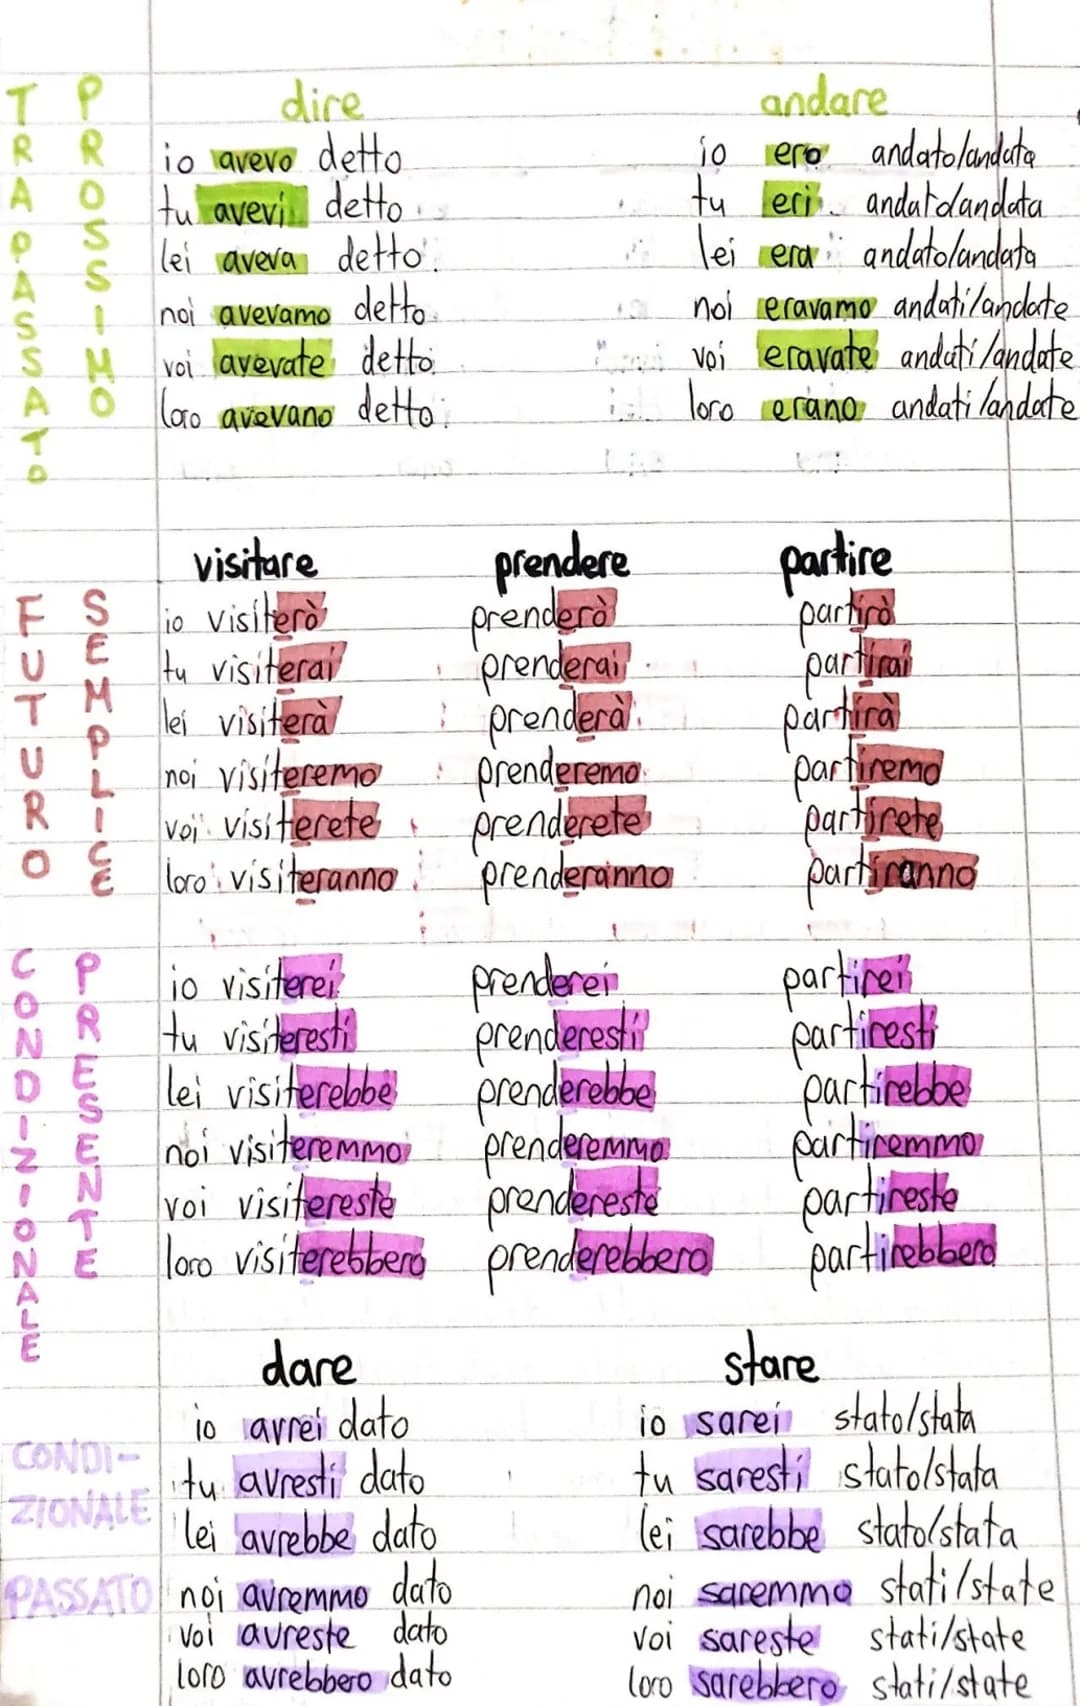 TRAPASSATO PROSSIMO
dire andare
io avevo detto io ero andato/andata
tu avevi detto tu eri andato/andata
lei aveva detto lei era andato/andata
noi avevamo detto noi eravamo andati/andate
voi avevate detto voi eravate andati/andate
loro avevano detto loro erano andati/andate
FUTURO SEMPLICE
visitare prendere partire
io visiterò prenderò partirò
tu visiterai prenderai partirai
lei visiterà prenderà partirà
noi visiteremo prenderemo partiremo
voi visiterete prenderete partirete
loro visiteranno prenderanno partiranno
CONDIZIONALE PRESENTE
io visiterei prenderei partirei
tu visiteresti prenderesti partiresti
lei visiterebbe prenderebbe partirebbe
noi visiteremmo prenderemmo partiremmo
voi visitereste prendereste partireste
loro visiterebbero prenderebbero partirebbero
dare stare
io avrei dato io sarei stato/stata
CONDI-
tu avresti dato tu saresti stato/stata
ZIONALE
lei avrebbe dato lei sarebbe stato/stata
PASSATO
noi avremmo dato noi saremmo stati/state
voi avreste dato voi sareste stati/state
loro avrebbero dato loro sarebbero stati/state